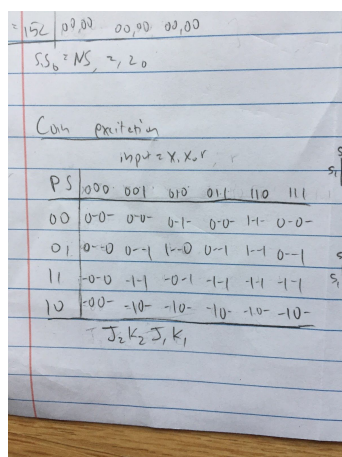 = 15¢ 00,00 00,00 00,00
S,S₀ = NS, Z, Z₀
Coin excitation
input = X, X₀, r
PS 000 001 010 011 110 111
00 0-0- 0-0- 0-1- 0-0- 1-1- 0-0-
01 0--0 0--1 1--0 0--1 1--1 0--1
11 -0-0 -1-1 -0-1 -1-1 -1-1 -1-1
10 -00- -10- -10- -10- -10- -10-
J₂K₂J₁K₁